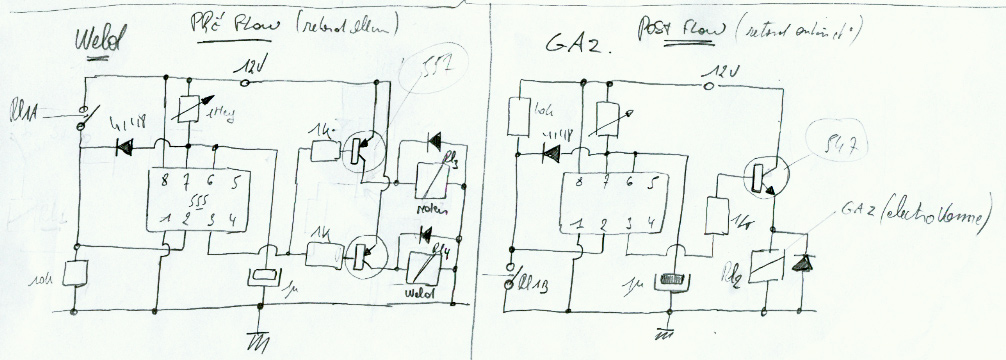 Weld
PRÉ FLOW (retard allum)
12V
557
Rl1A
4148
1Meg
1k
8 7 6 5
555
1 2 3 4
Rl3
Moteur
1k
Rl4
Weld
10k
1µ
GAZ.
POST FLOW (retard extinct°)
12V
10k
4148
547
8 7 6 5
1 2 3 4
1k
GAZ (electroVanne)
Rl1B
1µ
Rl2